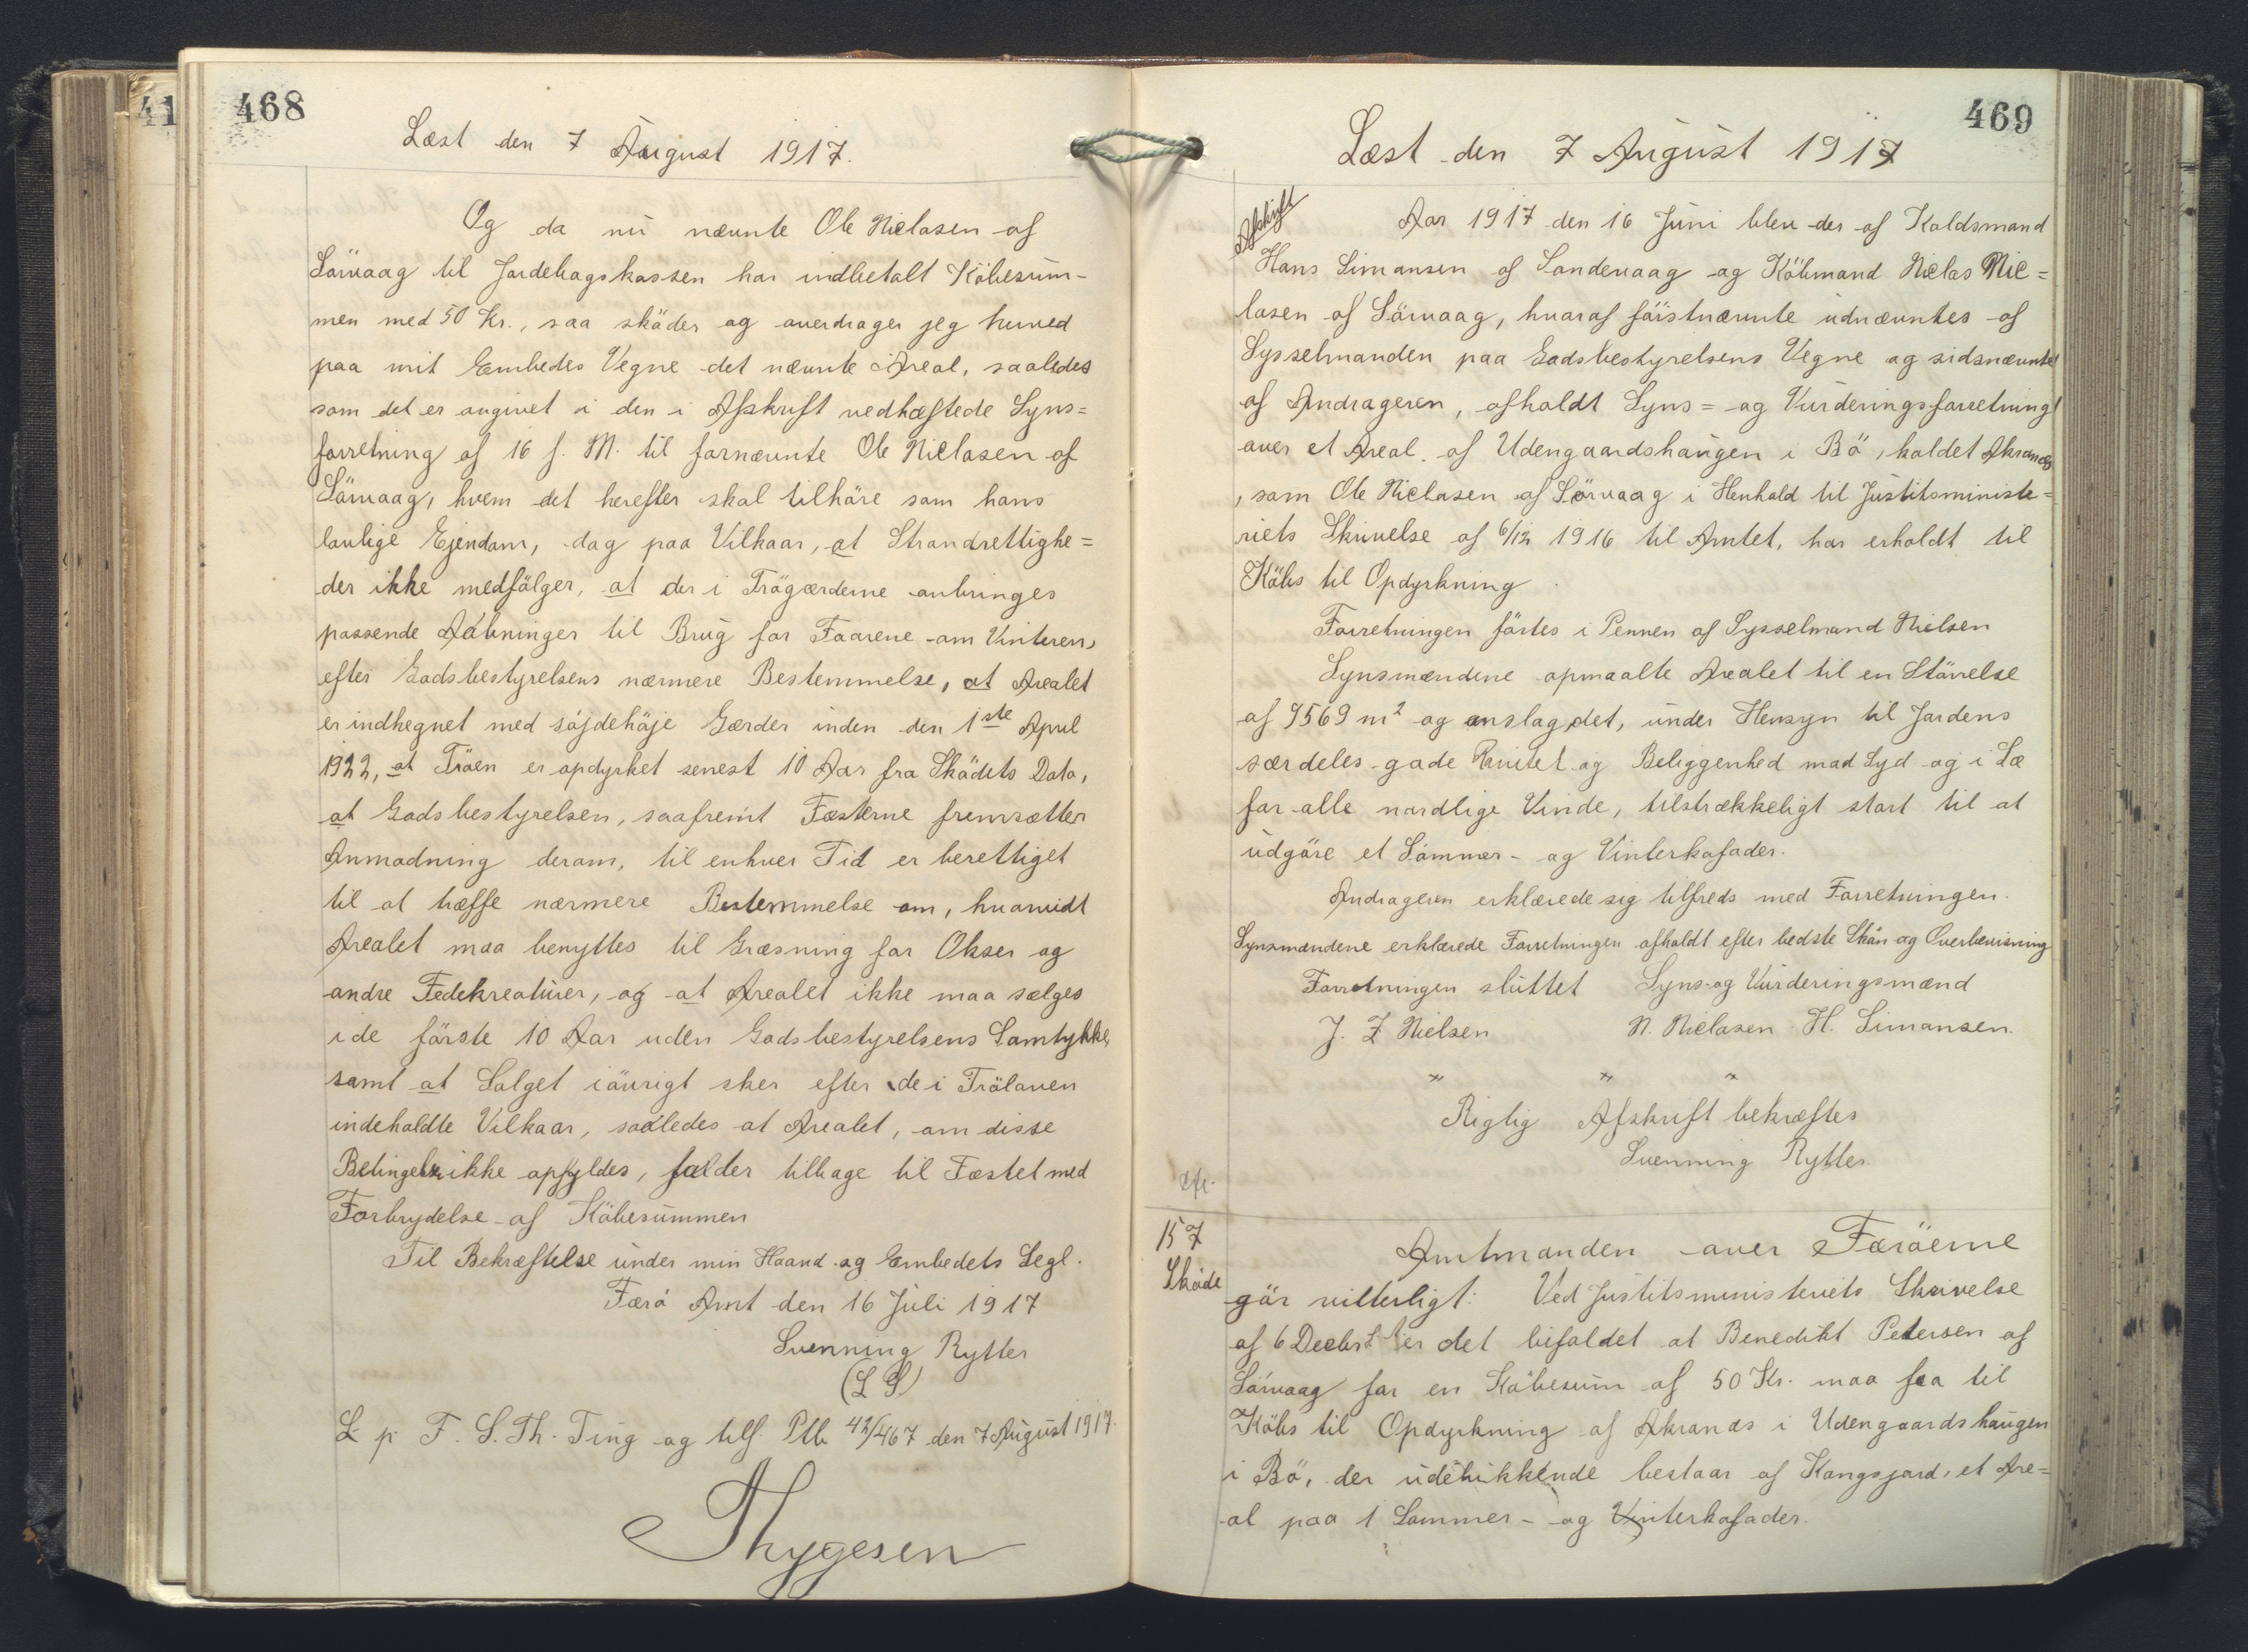 41
468
Læst den 7 August 1917.
Og da nu nævnte Ole Niclasen af
Sörvaag til Jordebogskassen har indbetalt Köbesum-
men med 50 Kr., saa sköder og overdrager jeg herved
paa mit Embedes Vegne det nævnte Areal, saaledes
som det er angivet i den i Afskrift vedhæftede Syns=
forretning af 16 f. M. til fornævnte Ole Niclasen af
Sörvaag, hvem det herefter skal tilhöre som hans
lovlige Ejendom, dog paa Vilkaar, at Strandrettighe=
der ikke medfölger, at der i Trögærderne anbringes
passende Aabninger til Brug for Faarene om Vinteren,
efter Godsbestyrelsens nærmere Bestemmelse, at Arealet
er indhegnet med söjdehöje Gærder inden den 1ste April
1922, at Tröen er opdyrket senest 10 Aar fra Sködets Dato,
at Godsbestyrelsen, saafremt Fæsterne fremsætter
Anmodning derom, til enhver Tid er berettiget
til at træffe nærmere Bestemmelse om, hvorvidt
Arealet maa benyttes til Græsning for Okser og
andre Fedekreaturer, og at Arealet ikke maa sælges
i de förste 10 Aar uden Godsbestyrelsens Samtykke,
samt at Salget iövrigt sker efter de i Tröloven
indeholdte Vilkaar, saaledes at Arealet, om disse
Betingelser ikke opfyldes, falder tilbage til Fæstet med
Forbrydelse af Köbesummen
Til Bekræftelse under min Haand og Embedets Segl.
Færö Amt den 16 Juli 1917
Svenning Rytter
(L S)
L p. F. S. Th. Ting og tilf. Ptb 42/467 den 7 August 1917.
Thygesen
469
Læst den 7 August 1917
Afskrift
Aar 1917 den 16 Juni blev der af Koldsmand
Hans Simonsen af Sandevaag og Köbmand Niclas Nic=
lasen af Sörvaag, hvoraf förstnævnte udnævntes af
Sysselmanden paa Godsbestyrelsens Vegne og sidsnævnte
af Andrageren, afholdt Syns= og Vurderingsforretning
over et Areal af Udengaardshaugen i Bö, kaldet Akranes
, som Ole Niclasen af Sörvaag i Henhold til Justitsministe=
riets Skrivelse af 6/12 1916 til Amtet, har erholdt til
Köbs til Opdyrkning.
Forretningen förtes i Pennen af Sysselmand Nielsen
Synsmændene opmaalte Arealet til en Störrelse
af 9569 m² og anslog det, under Hensyn til Jordens
særdeles gode Kvalitet og Beliggenhed mod Syd og i Læ
for alle nordlige Vinde, tilstrækkeligt stort til at
udgöre et Sommer- og Vinterkofoder.
Andrageren erklærede sig tilfreds med Forretningen.
Synsmændene erklærede Forretningen afholdt efter bedste Skön og Overbevisning
Forretningen sluttet Syns- og Vurderingsmænd
J. Z Nielsen N. Niclasen H. Simonsen.
" " "
Rigtig Afskrift bekræftes
Svenning Rytter.
157
Sköde
Amtmanden over Færöerne
gör vitterligt: Ved Justitsministeriets Skrivelse
af 6 Decbr f A er det bifaldet at Benedikt Petersen af
Sörvaag for en Köbesum af 50 Kr. maa faa til
Köbs til Opdyrkning af Akranes i Udengaardshaugen
i Bö, der udelukkende bestaar af Kongsjord, et Are=
al paa 1 Sommer- og Vinterkofoder.